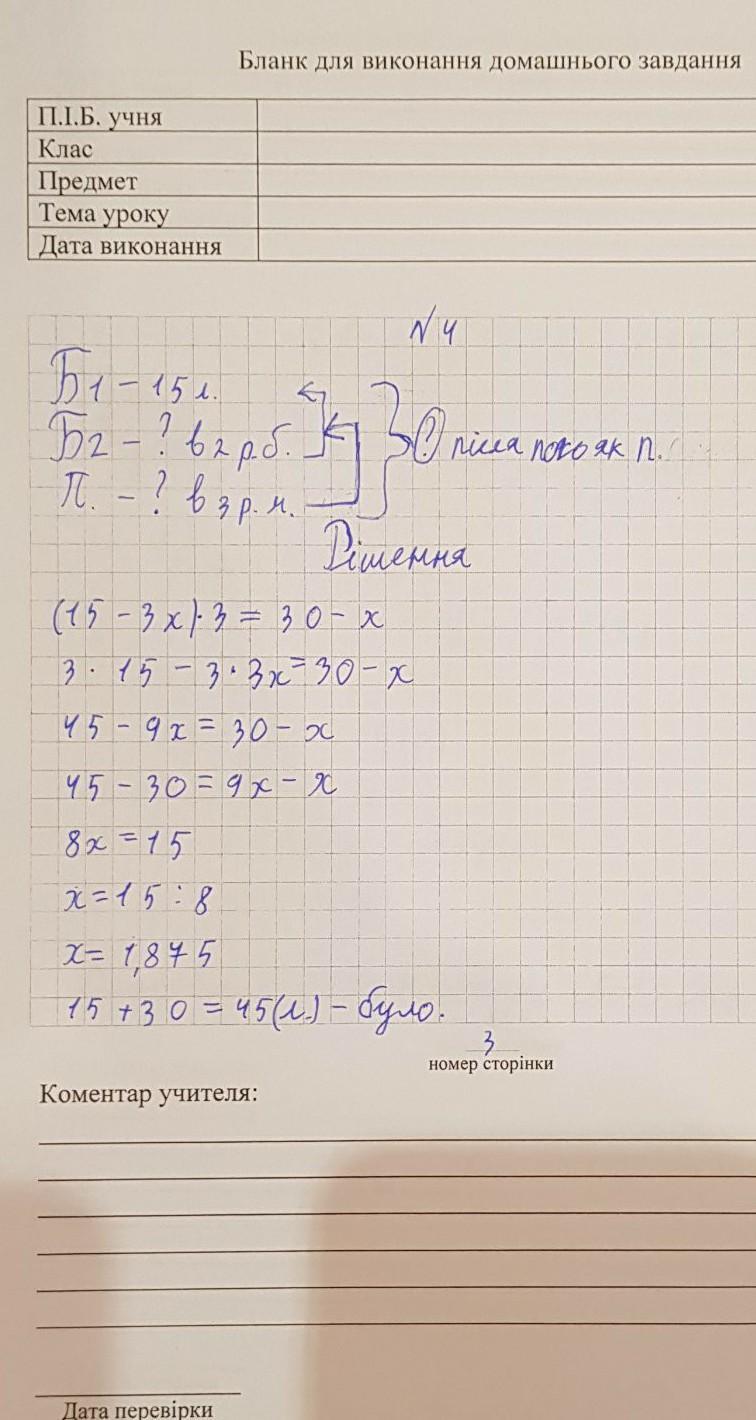 Бланк для виконання домашнього завдання
П.І.Б. учня
Клас
Предмет
Тема уроку
Дата виконання
№ 4
Б1 – 15 л.
Б2 – ? в 2 р. б.
П. – ? в 3 р. м.
? після того як п.
Рішення
(15 – 3x)·3 = 30 – x
3 · 15 – 3 · 3x = 30 – x
45 – 9x = 30 – x
45 – 30 = 9x – x
8x = 15
x = 15 : 8
x = 1,875
15 + 30 = 45 (л.) – було.
3
номер сторінки
Коментар учителя:
Дата перевірки